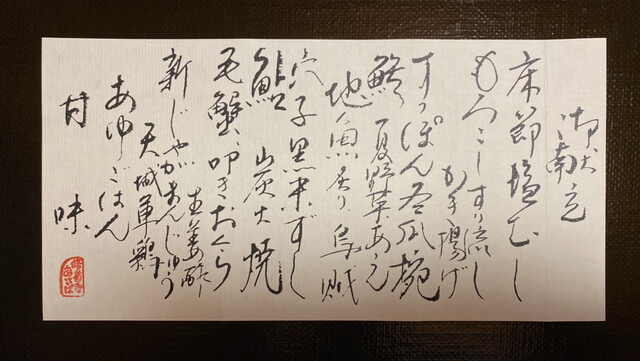 御献立
床節塩むし
もろこしすり流し
かき揚げ
すっぽん冬瓜椀
夏野菜あえ
地魚炙り 烏賊
穴子黒米ずし
鮎 炭火焼
毛蟹、叩きおくら
生姜酢
新じゃがまんじゅう
天城軍鶏
あゆごはん
甘味